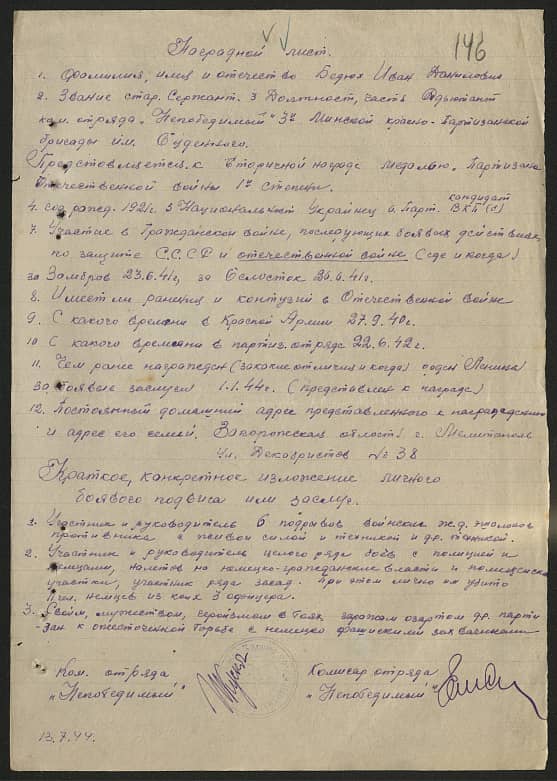 146
Наградной лист.
1. Фамилия, имя и отчество Бедня Иван Данилович
2. Звание стар. Сержант. 3 Должност, часть Адьютант
ком. отряда „Непобедимый" 3й Минской красно-партизанской
бригады им. Буденного.
Представляется к вторичной награде медалью „Партизана
Отечественной войны 1й степени.
4. год рожд. 1921г. 5 Национальност Украинец 6. Парт. кандидат ВКП(б)
7. Участие в Гражданской войне, последующих боевых действиях
по защите С.С.С.Р и отечественной войне (где и когда)
за Замбров 23.6.41г, за Белосток 26.6.41г.
8. Имеет ли ранения и контузии в Отечественной войне
9. С какого времени в Красной Армии 27.9.40г.
10 С какого времени в партиз. отряде 22.6.42г.
11. Чем ранее награжден (за какие отличия и когда) орден Ленина
за боевые заслуги 1.1.44г. (представлен к награде)
12. Постоянный домашний адрес представленного к награждению
и адрес его семьи. Запорожская област г. Мелитополь
ул. Декабристов №38
Краткое, конкретное изложение личного
боевого подвига или заслуг.
1. Участник и руководитель 6 подрывов воинских ж.д. эшалонов
противника с живой силой и техникой и др. техникой.
2. Участник и руководитель целого ряда боёв с полицией и
немцами, налетов на немецко-гражданские власти и
участки, участник ряда засад. При этом лично им убито
немцев из коих 3 офицера.
3. Своим, мужеством, героизмом в боях заражал азартом др. парти
-зан к ожесточенной борьбе с немецко фашискими захватчиками
Ком. отряда
„Непобедимый"
Комисар отряда
„Непобедимый"
13.7.44.